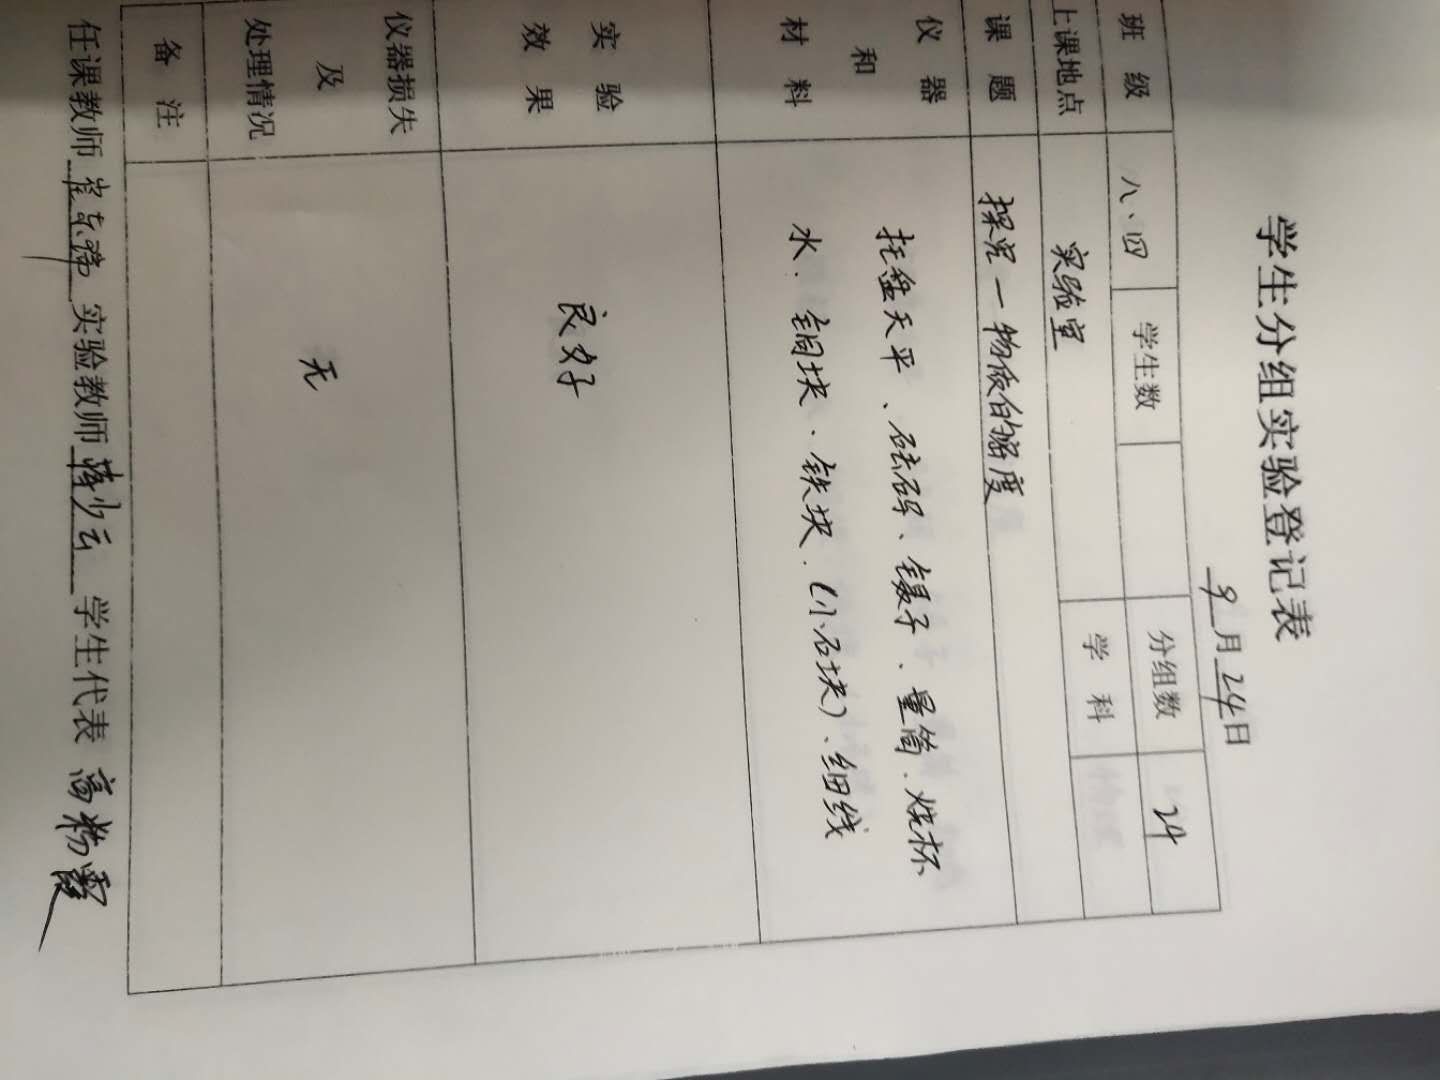 学生分组实验登记表
9月24日
班级 八、四 学生数 分组数 24
上课地点 实验室 学科
课题 探究一物质的密度
仪器和材料 托盘天平、砝码、镊子、量筒、烧杯
水、铜块、铁块、(小石块)、细线
实验效果 良好
仪器损失及处理情况 无
备注
任课教师 实验教师 蒋少云 学生代表 高粉霞